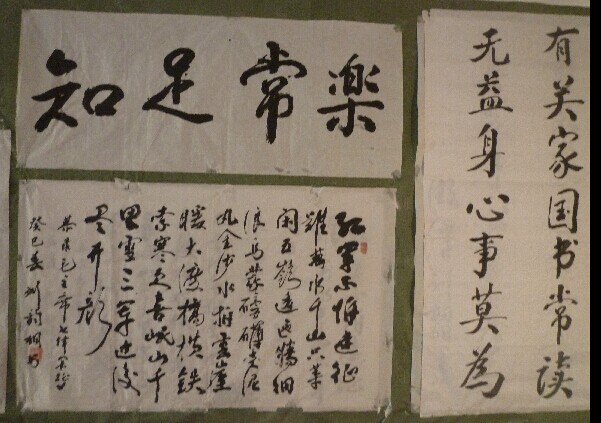 知足常楽
红军不怕远征
難萬水千山只等
闲五嶺逶迤腾细
浪乌蒙磅礴走泥
丸金沙水拍雲崖
暖大渡橋横鉄
索寒更喜岷山千
里雪三軍过後
尽开颜
毛主席七律
癸巳春
有关家国书常读
无益身心事莫為